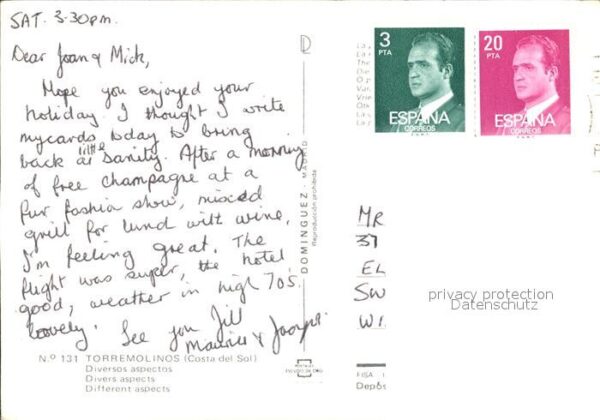 SAT. 3-30pm.
Dear Joan & Mick,
Hope you enjoyed your
holiday. I thought I write
mycards today to bring
back a little sanity. After a morning
of free champagne at a
fur fashion show, mixed
grill for lunch with wine,
I'm feeling great. The
flight was super, the hotel
good, weather in high 70's.
Lovely. See you Jill
Maurice &
Nº 131 TORREMOLINOS (Costa del Sol)
Diversos aspectos
Divers aspects
Different aspects
DOMINGUEZ - MADRID
Reproducción prohibida
3
PTA
ESPAÑA
CORREOS
20
PTA
ESPAÑA
CORREOS
MR
37
EL
SW
WI
privacy protection
Datenschutz
FISA
Depós